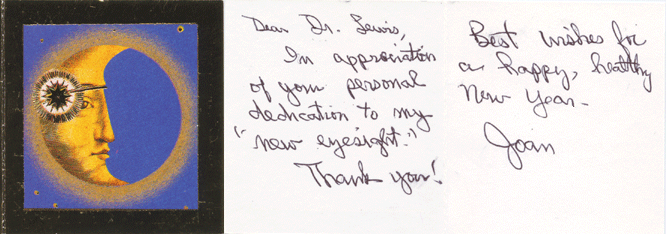 Dear Dr. Lewis,
In appreciation
of your personal
dedication to my
"new eyesight."
Thank you!
Best wishes for
a happy, healthy
New Year-
Joan